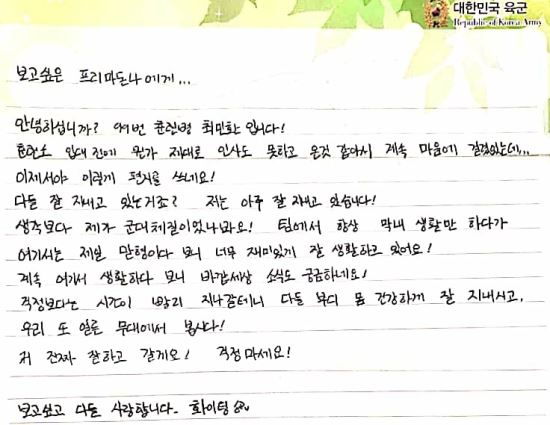 대한민국 육군
Republic of Korea Army
보고싶은 프리마돈나에게...
안녕하십니까? 여번 훈련병 최민환 입니다!
훈련소 입대 전에 뭔가 제대로 인사도 못하고 온것 같아서 계속 마음에 걸렸었는데...
이제서야 이렇게 편지를 쓰네요!
다들 잘 지내고 있는거죠? 저는 아주 잘 지내고 있습니다!
생각보다 제가 군대체질이었나봐요! 팀에서 항상 막내 생활만 하다가
여기서는 제일 맏형이다 보니 너무 재미있게 잘 생활하고 있어요!
계속 여기서 생활하다 보니 바깥세상 소식도 궁금하네요!
걱정보다는 시간이 빨리 지나갈테니 다들 부디 몸 건강하게 잘 지내시고,
우리 또 얼른 무대에서 봅시다!
저 진짜 잘하고 갈게요! 걱정마세요!
보고싶고 다들 사랑합니다. 화이팅